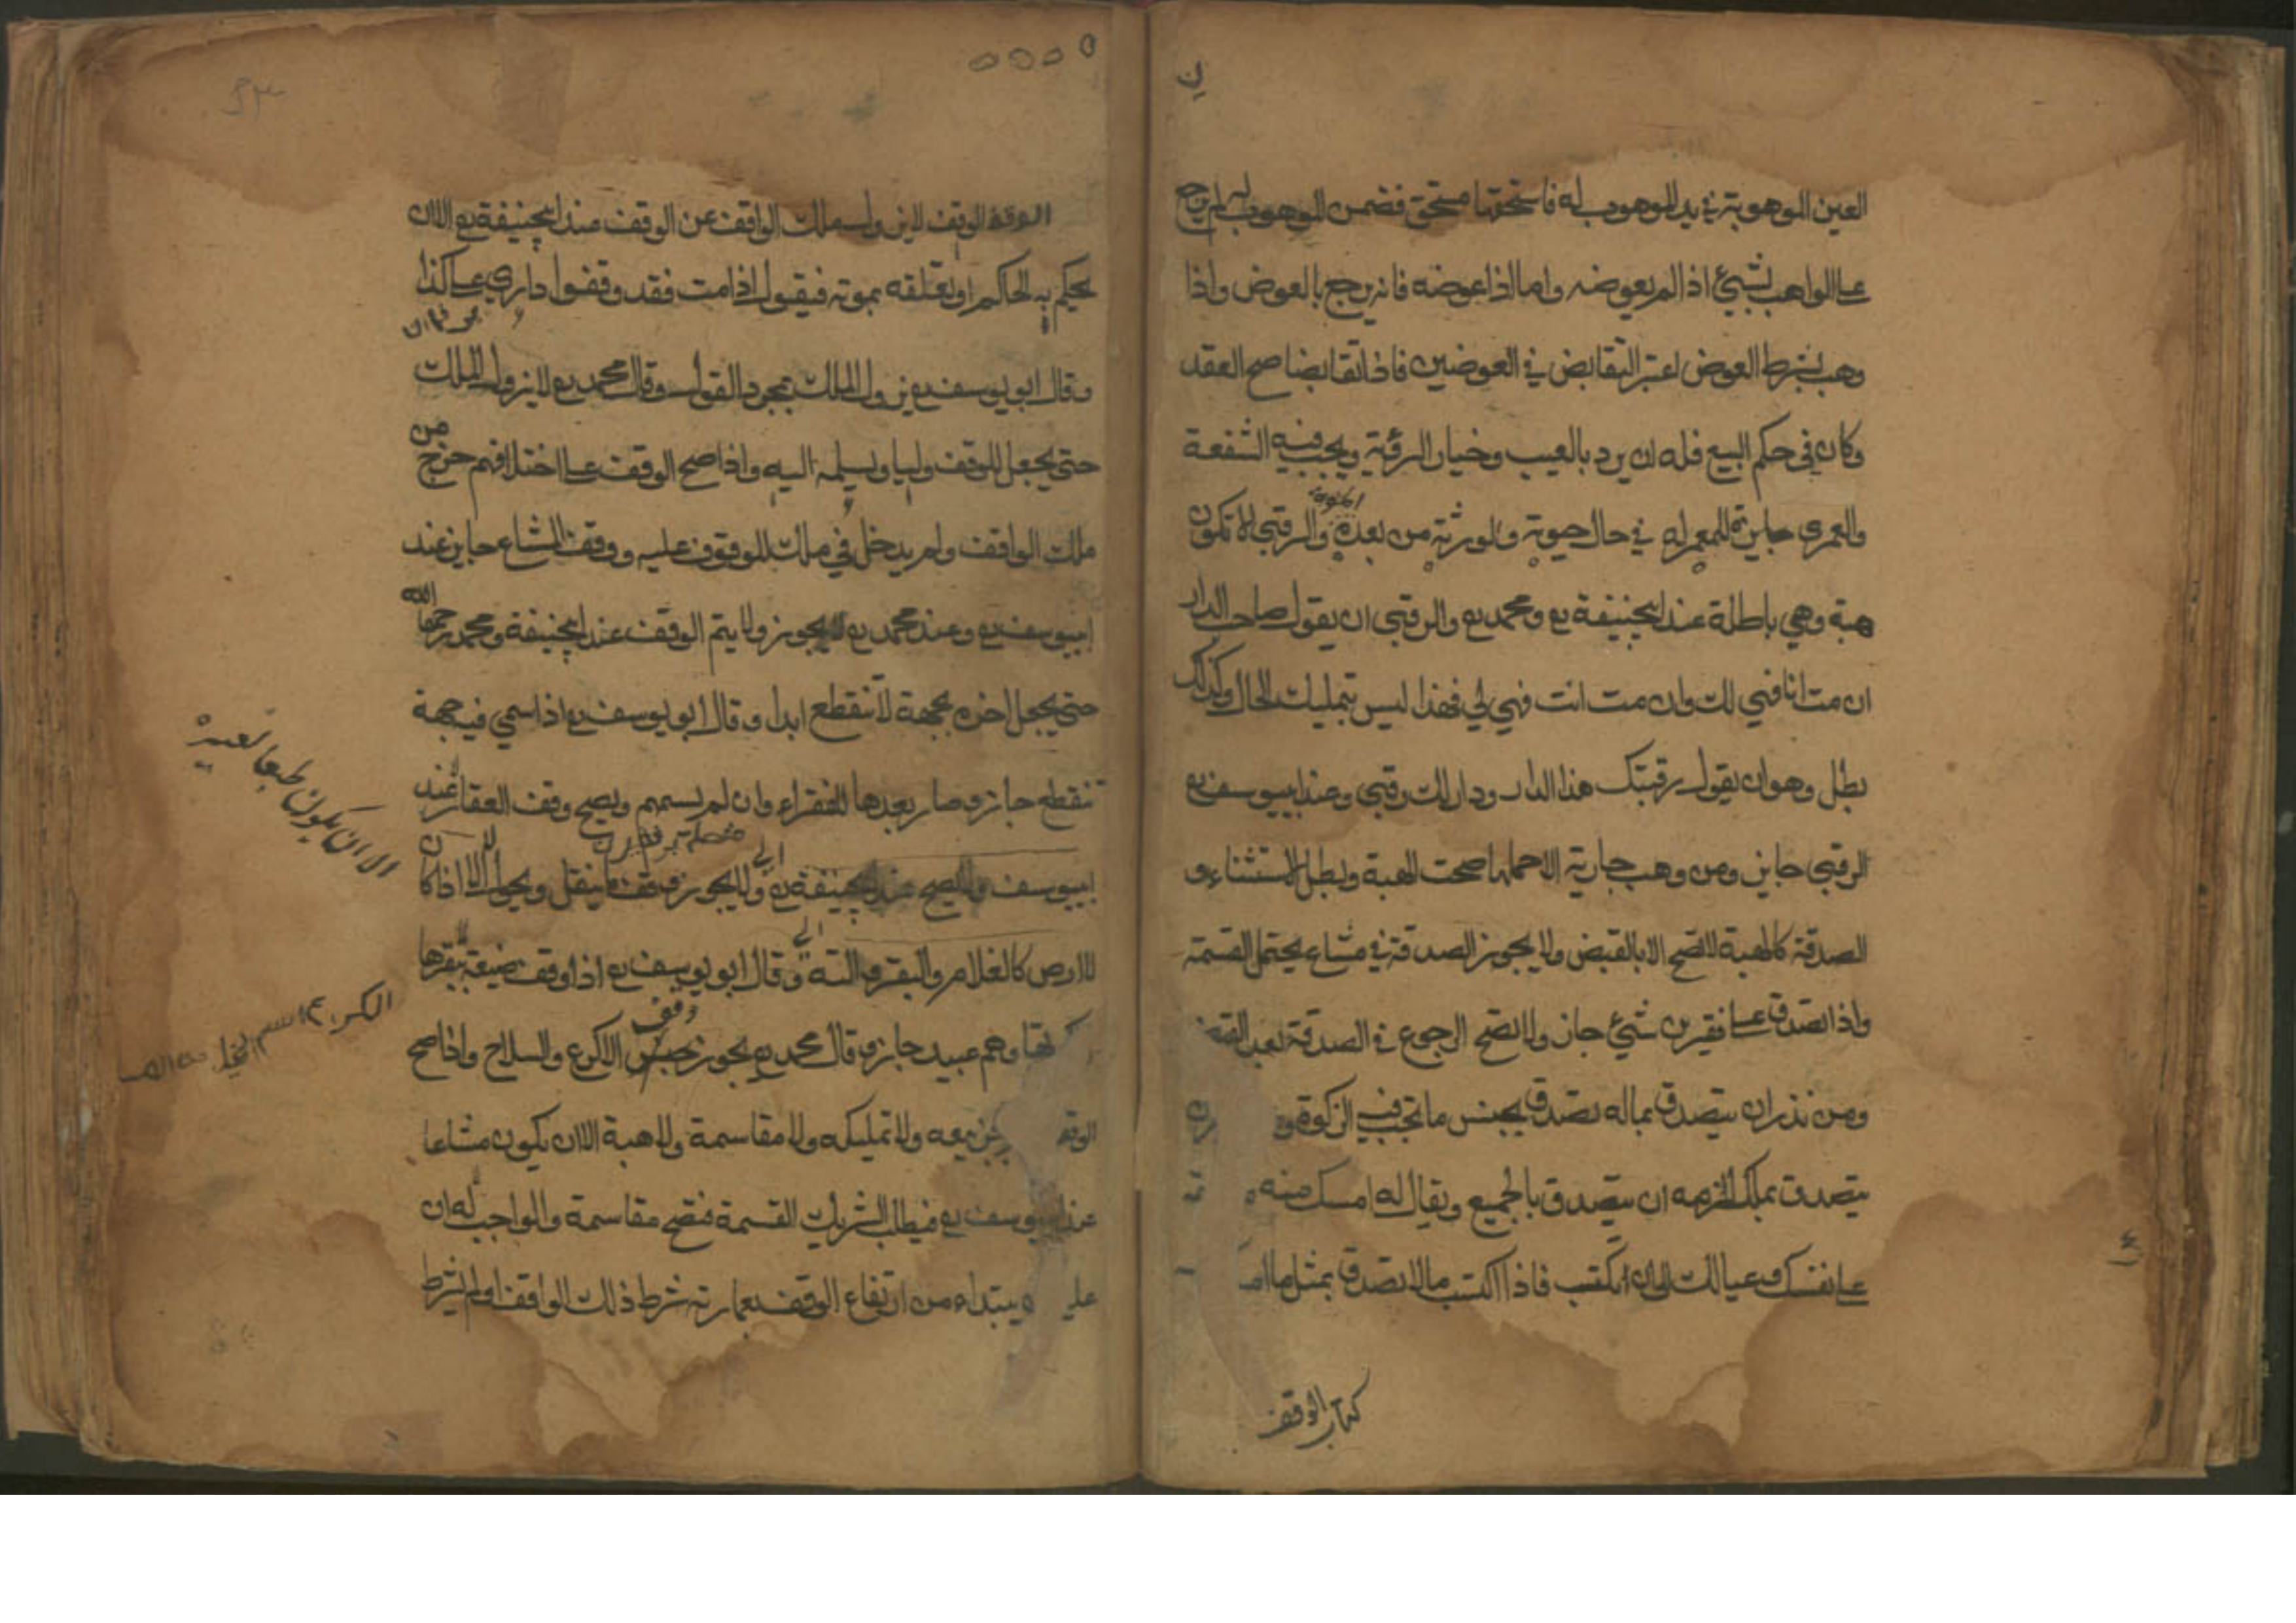 العين الموهوبة في يد الموهوب له فاستحقها مستحق فضمن الموهوب له لم يرجع
على الواهب لشيئ اذا لم يعوضه واما اذا عوضه فانه يرجع بالعوض واذا
وهب بشرط العوض اعتبر التقابض في العوضين فاذا تقابضا صح العقد
وكان في حكم البيع فله ان يرد بالعيب وخيار الرؤية ويجب فيه الشفعة
والعمرى جايزة للمعمر له في حال حيوته ولورثته من بعده والرقبى لا تكون
هبة وهي باطلة عند ابيحنيفة رح ومحمد رح والرقبى ان يقول صاحب الدار
ان مت انا فهي لك وان مت انت فهي لي فهذا ليس بتمليك الحال وكذلك
بطل وهو ان يقول رقبتك هذا الدار ودار لك رقبى وعند ابييوسف رح
الرقبى جايز ومن وهب جارية الا حملها صحت الهبة وبطل الاستثناء و
الصدقة كالهبة لا تصح الا بالقبض ولا يجوز الصدقة في مشاع يحتمل القسمة
واذا تصدق على فقيرين شيئ جاز ولا تصح الرجوع في الصدقة بعد القبض
ومن نذر ان يتصدق بماله تصدق بجنس ما تجب فيه الزكوة
يتصدق بملك لزمه ان يتصدق بالجميع ويقال له امسك منه
على نفسك وعيالك الى ان اكتسب فاذا اكتسب مالا تصدق بمثل ما
كتاب الوقف
الوقف لا يزول ملك الواقف عن الوقف عند ابيحنيفة رح الا ان
يحكم به الحاكم او يعلقه بموته فيقول اذا مت فقد وقفوا داري على كذا
وقال ابو يوسف رح يزول الملك بمجرد القول وقال محمد رح لا يزول الملك
حتى يجعل للوقف وليا ويسلمه اليه واذا صح الوقف على اختلافهم خرج من
ملك الواقف ولم يدخل في ملك الموقوف عليه ووقف المشاع جايز عند
ابييوسف رح وعند محمد رح لا يجوز ولا يتم الوقف عند ابيحنيفة ومحمد رحمهما الله
حتى يجعل اخره بجهة لا تنقطع ابدا وقال ابو يوسف رح اذا سمي فيه جهة
تنقطع جاز وصار بعدها للفقراء وان لم يسمهم ويصح وقف العقار عند
ابييوسف ولا يصح عند ابيحنيفة رح ولا يجوز وقف ما ينقل ويحول الا اذا كان
للارض كالغلام والبقر والته وقال ابو يوسف رح اذا وقف ضيعة ببقرها
وهم عبيد جاز وقال محمد رح يجوز حبس الكرع والسلاح واذا صح
بيعه ولا تمليكه ولا مقاسمة ولا هبة الا ان يكون مشاعا
عند ابييوسف رح فيطلب الشريك القسمة فتصح مقاسمة والواجب له ان
يبتداء من ارتفاع الوقف بعمارته شرط ذلك الواقف او لم يشرط
الا ان يكون